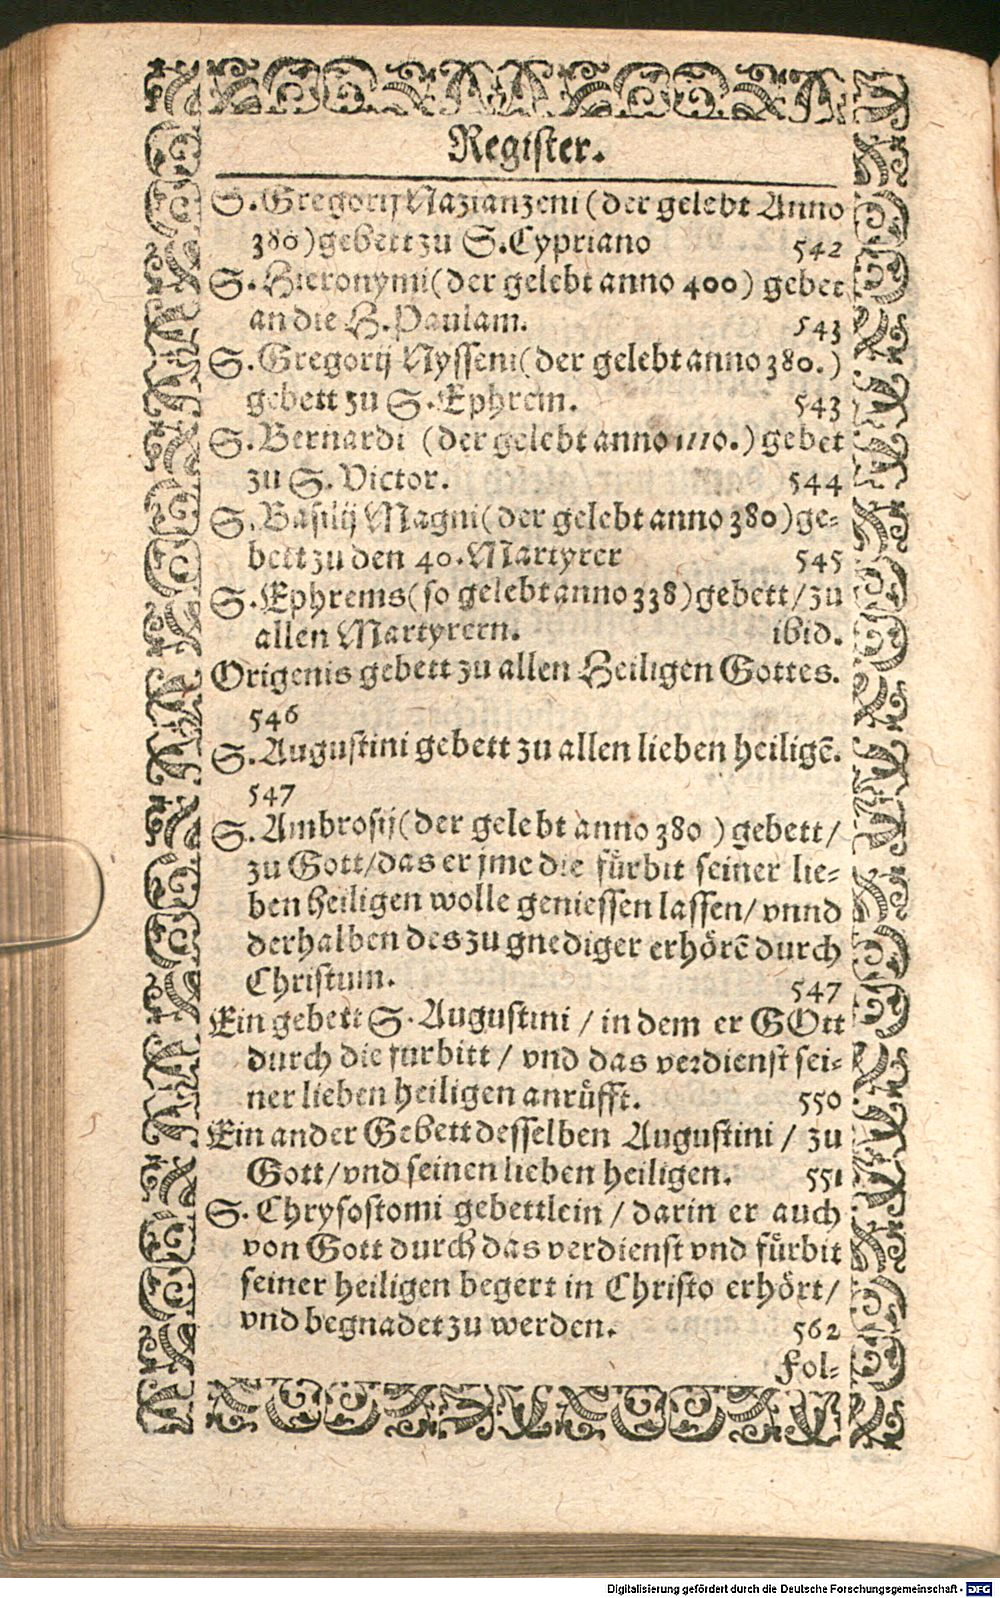 Register.
S. Gregorij Nazianzeni (der gelebt Anno
380) gebett zu S. Cypriano 542
S. Hieronymi (der gelebt anno 400) gebet
an die H. Paulam. 543
S. Gregorij Nysseni (der gelebt anno 380.)
gebett zu S. Ephrem. 543
S. Bernardi (der gelebt anno 1110.) gebet
zu S. Victor. 544
S. Basilij Magni (der gelebt anno 380) ge=
bett zu den 40. Martyrer 545
S. Ephrems (so gelebt anno 338) gebett / zu
allen Martyrern. ibid.
Origenis gebett zu allen Heiligen Gottes.
546
S. Augustini gebett zu allen lieben heiligē.
547
S. Ambrosij (der gelebt anno 380 ) gebett /
zu Gott / das er jme die fürbit seiner lie=
ben heiligen wolle geniessen lassen / vnnd
derhalben des zu gnediger erhörē durch
Christum. 547
Ein gebett S. Augustini / in dem er GOtt
durch die furbitt / vnd das verdienst sei=
ner lieben heiligen anrüfft. 550
Ein ander Gebett desselben Augustini / zu
Gott / vnd seinen lieben heiligen. 551
S. Chrysostomi gebettlein / darin er auch
von Gott durch das verdienst vnd fürbit
seiner heiligen begert in Christo erhört /
vnd begnadet zu werden. 562
Fol=
Digitalisierung gefördert durch die Deutsche Forschungsgemeinschaft - DFG